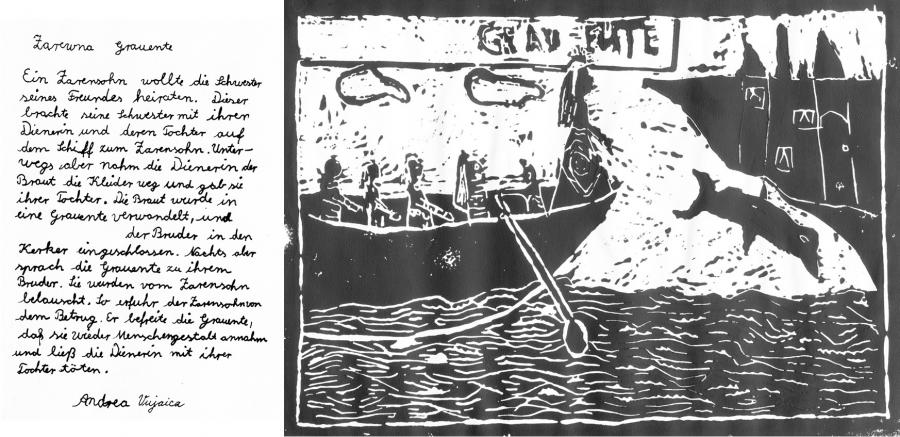 Zarewna Grauente
Ein Zarensohn wollte die Schwester
seines Freundes heiraten. Dieser
brachte seine Schwester mit ihrer
Dienerin und deren Tochter auf
dem Schiff zum Zarensohn. Unter-
wegs aber nahm die Dienerin der
Braut die Kleider weg und gab sie
ihrer Tochter. Die Braut wurde in
eine Grauente verwandelt, und
der Bruder in den
Kerker eingeschlossen. Nachts aber
sprach die Grauente zu ihrem
Bruder. Sie wurden vom Zarensohn
belauscht. So erfuhr der Zarensohn von
dem Betrug. Er befreite die Grauente,
daß sie wieder Menschengestalt annahm
und ließ die Dienerin mit ihrer
Tochter töten.
Andrea Vujaica
GRAU-ENTE